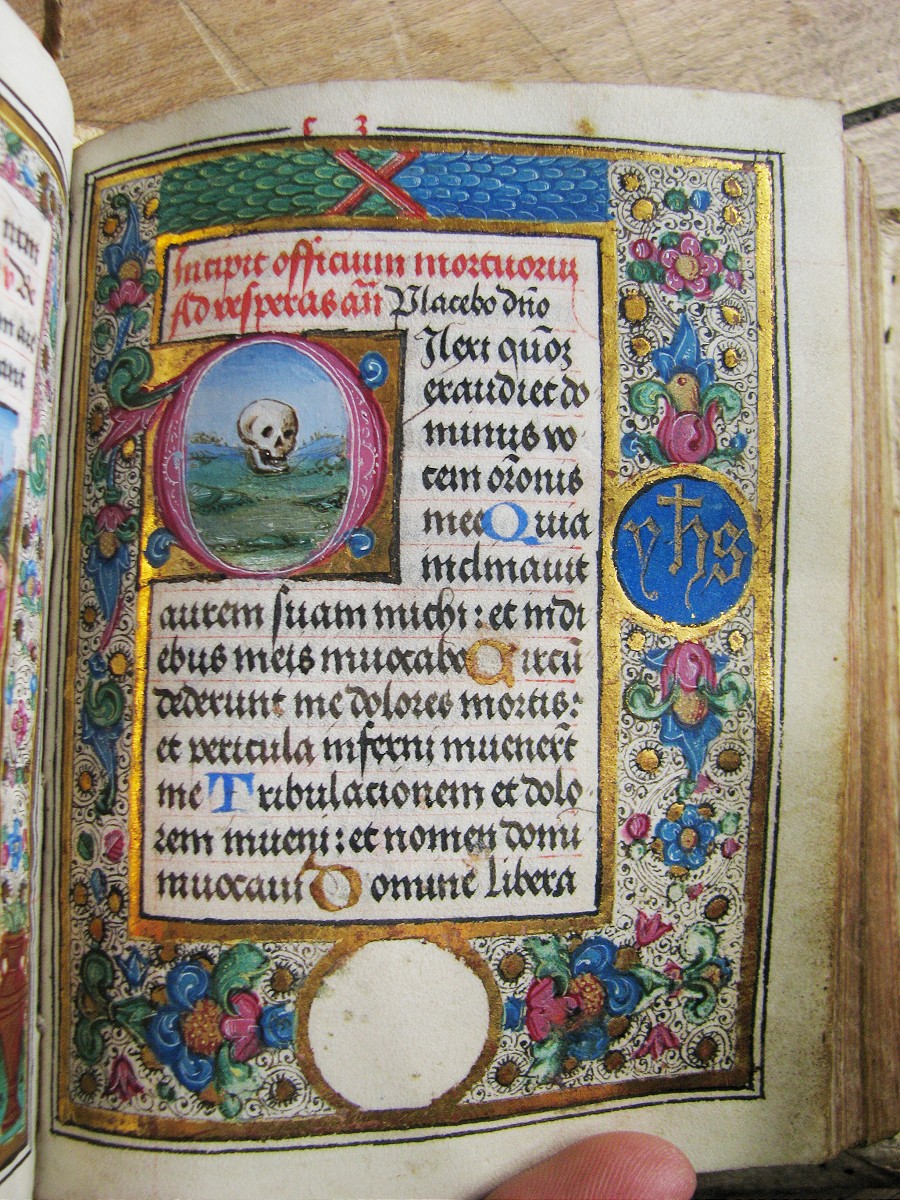 Incipit officium mortuorum
Ad vesperas añ Placebo dño
Dilexi quoz
exaudiet do
minus vo
cem orõnis
mee Quia
inclinauit
aurem suam michi : et in di
ebus meis inuocabo Circũ
dederunt me dolores mortis :
et pericula inferni inuenerũt
me Tribulacionem et dolo
rem inueni : et nomen domi
inuocaui O domine libera
yhs